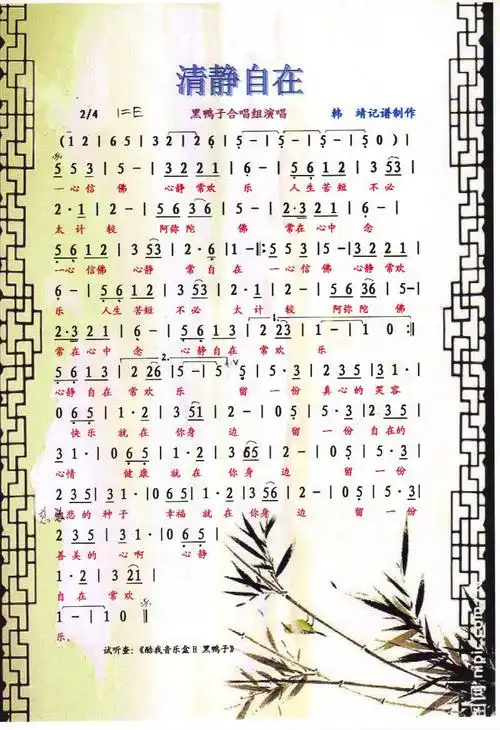 清静自在
2/4 1=E 黑鸭子合唱组演唱 韩 靖记谱制作
(1 2 | 6 5 | 3 2 | 1 2 | 6 | 5 - | 5 - | 5 - | 5 0 ) |
5 5 3 | 5 - | 3 2 2 1 | 6 - | 5 6 1 2 | 3 5 3 |
一心信 佛 心静常欢 乐 人生苦短 不必
2 · 1 | 2 - | 5 6 3 6 | 5 - | 2 · 3 2 1 | 6 - |
太计 较 阿弥陀 佛 常在心中 念
5 6 1 2 | 3 5 3 | 2 · 6 | 1 - :| 5 5 3 | 5 - | 3 2 2 1 |
一心信佛 心静 常自 在 一心信 佛 心静常欢
6 - | 5 6 1 2 | 3 5 3 | 2 · 1 | 2 - | 5 6 3 6 | 5 - |
乐 人生苦短 不必 太计 较 阿弥陀 佛
2 · 3 2 1 | 6 - | 5 6 1 3 | 2 2 3 | 1 - | 1 0 :|
1.
常在心中 念 心静自在 常欢 乐
2.
5 6 1 3 | 2 2 6 | 5 - | 5 | 5 · 3 | 2 3 5 | 3 1 · |
心静自在 常欢 乐 留 一份 真心的 笑容
0 6 5 | 1 · 2 | 3 5 1 | 2 - | 0 5 | 5 · 3 | 2 3 5 |
快乐 就在 你身 边 留 一份 自在的
3 1 · | 0 6 5 | 1 · 2 | 3 6 5 | 2 - | 0 5 | 5 · 3 |
心情 健康 就在 你身 边 留 一份
2 3 5 | 3 1 · | 0 6 5 | 1 · 2 | 3 5 6 | 2 - | 0 5 | 5 · 3 |
慈悲的 种子 幸福 就在 你身 边 留 一份
2 3 5 | 3 1 · | 0 6 5 |
善美的 心啊 心静
1 · 2 | 3 2 1 |
自在 常欢
1 - | 1 0 ‖
乐。
试听查:《酷我音乐盒 黑鸭子》
图网 nipic.com